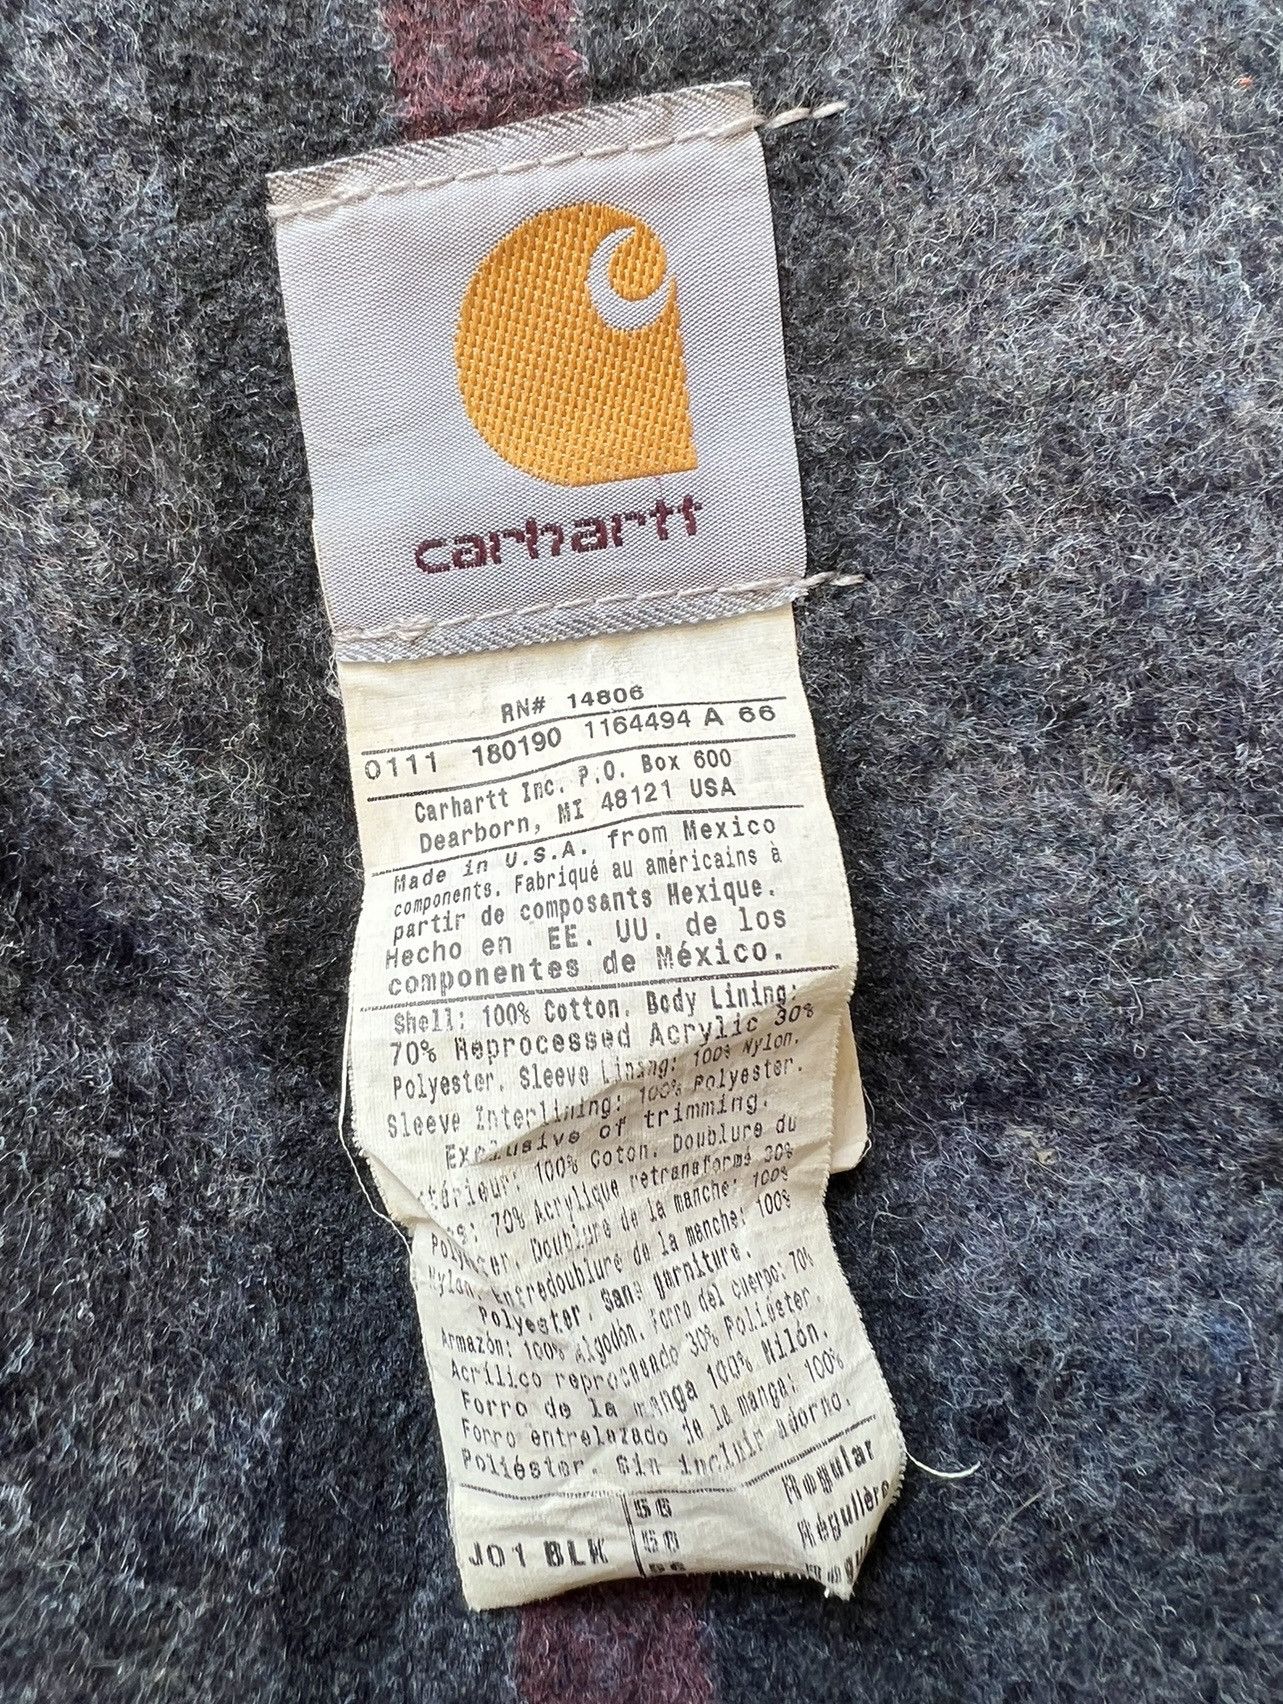 carhartt
RN# 14806
0111 180190 1164494 A 66
Carhartt Inc. P.O. Box 600
Dearborn, MI 48121 USA
Made in U.S.A. from Mexico
components. Fabriqué au américains à
partir de composants Mexique.
Hecho en EE. UU. de los
componentes de México.
Shell: 100% Cotton. Body Lining:
70% Reprocessed Acrylic 30%
Polyester. Sleeve Lining: 100% Nylon.
Sleeve Interlining: 100% Polyester.
Exclusive of trimming.
100% Coton. Doublure du
70% Acrylique retransformé 30%
Polyester. Doublure de la manche: 100%
Nylon. Entredoublure de la manche: 100%
Polyester. Sans garniture.
Armazón: 100% Algodón. Forro del cuerpo: 70%
Acrílico reprocesado 30% Poliéster.
Forro de la manga 100% Nilón.
Forro entrelazado de la manga: 100%
Poliéster. Sin incluir adorno.
J01 BLK
56
56
56
Regular
Régulière